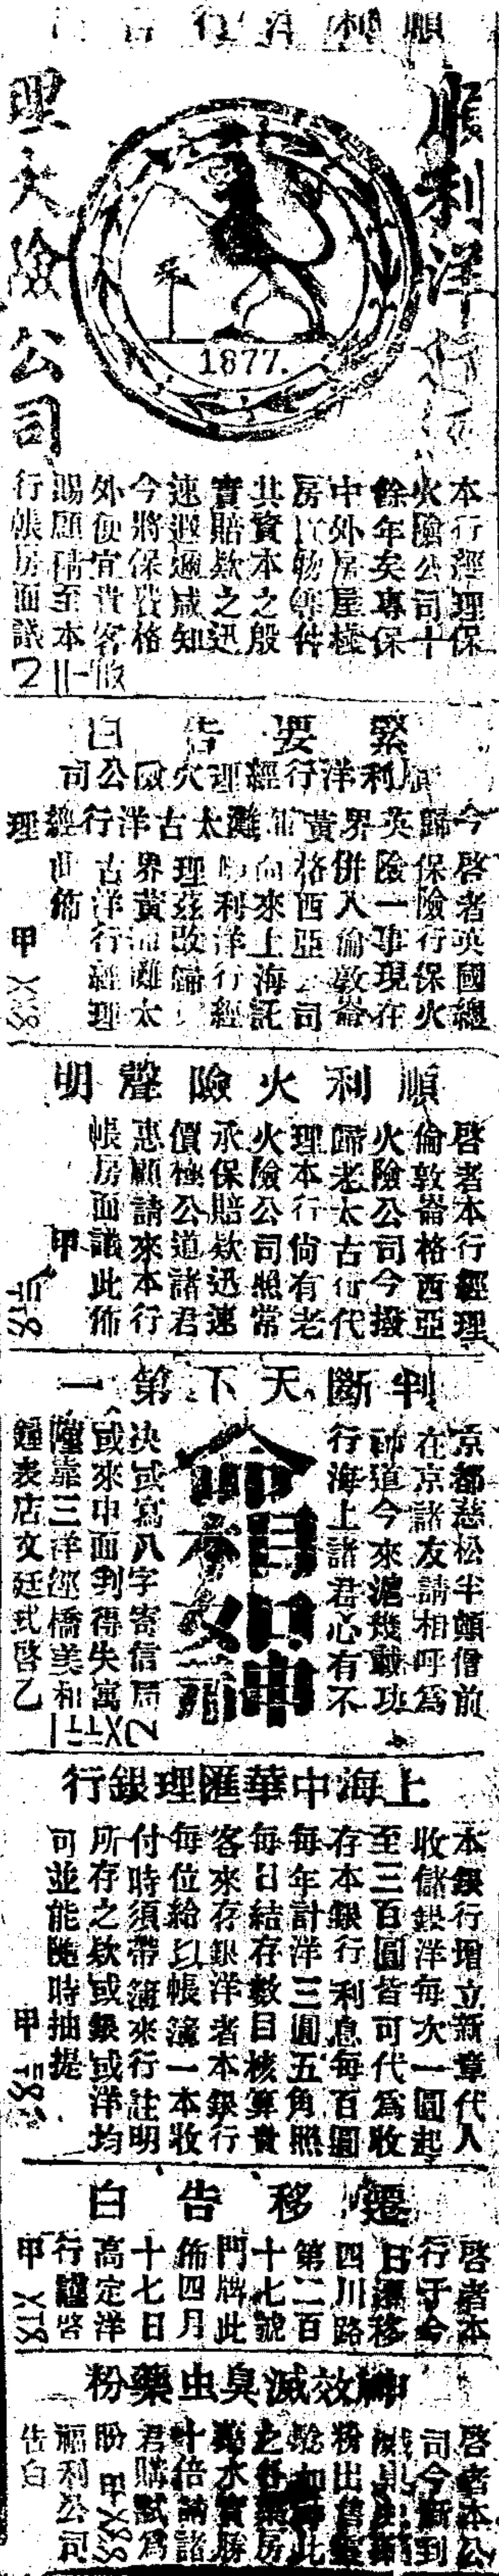 順利洋行告白
順利洋行經
理火險公司
1877.
本行經理保
火險公司十
餘年矣專保
中外房屋棧
房貨物等件
其資本之殷
實賠欵之迅
速遐邇咸知
今將保費格
外便宜貴客收
賜顧請至本
行帳房面議
緊要告白
順利洋行經理火險公司
今歸英界黃浦灘太古洋行經理
啓者英國總
保險行保火
險一事現在
併入倫敦崙
格西亞公司
向來上海託
順利洋行經
理茲改歸英
界黃浦灘太
古洋行經理
此佈
甲
順利火險聲明
啓者本行經理
倫敦崙格西亞
火險公司今撥
歸老太古行代
理本行尙有老
火險公司照常
承保賠欵迅速
價極公道諸君
惠顧請來本行
帳房面議此佈
甲
判斷天下第一
京都慈松半顚僧前
在京諸友請相呼爲
師道今來滬幾載功
行海上諸君心有不
命相
决或寫八字寄信局
或來申面判得失寓
隆靠三洋徑橋美和
鐘表店文廷式啓乙
上海中華匯理銀行
本銀行增立新章代人
收儲銀洋每次一圓起
至三百圓皆可代爲收
存本銀行利息每百圓
每年計洋三圓五角照
每日結存數目核算貴
客來存銀洋者本銀行
每位給以帳簿一本收
付時須帶簿來行註明
所存之欵或銀或洋均
可並能隨時抽提
甲
遷移告白
啓者本
行于今
日遷移
四川路
第二百
十七號
門牌此
佈四月
十七日
高定洋
行謹啓
甲
神效滅臭虫藥粉
啓者本公
司今新到
滅臭虫藥
粉出售
此
之各藥房
藥水實勝
十倍請諸
君購試爲
盼甲
福利公司
告白